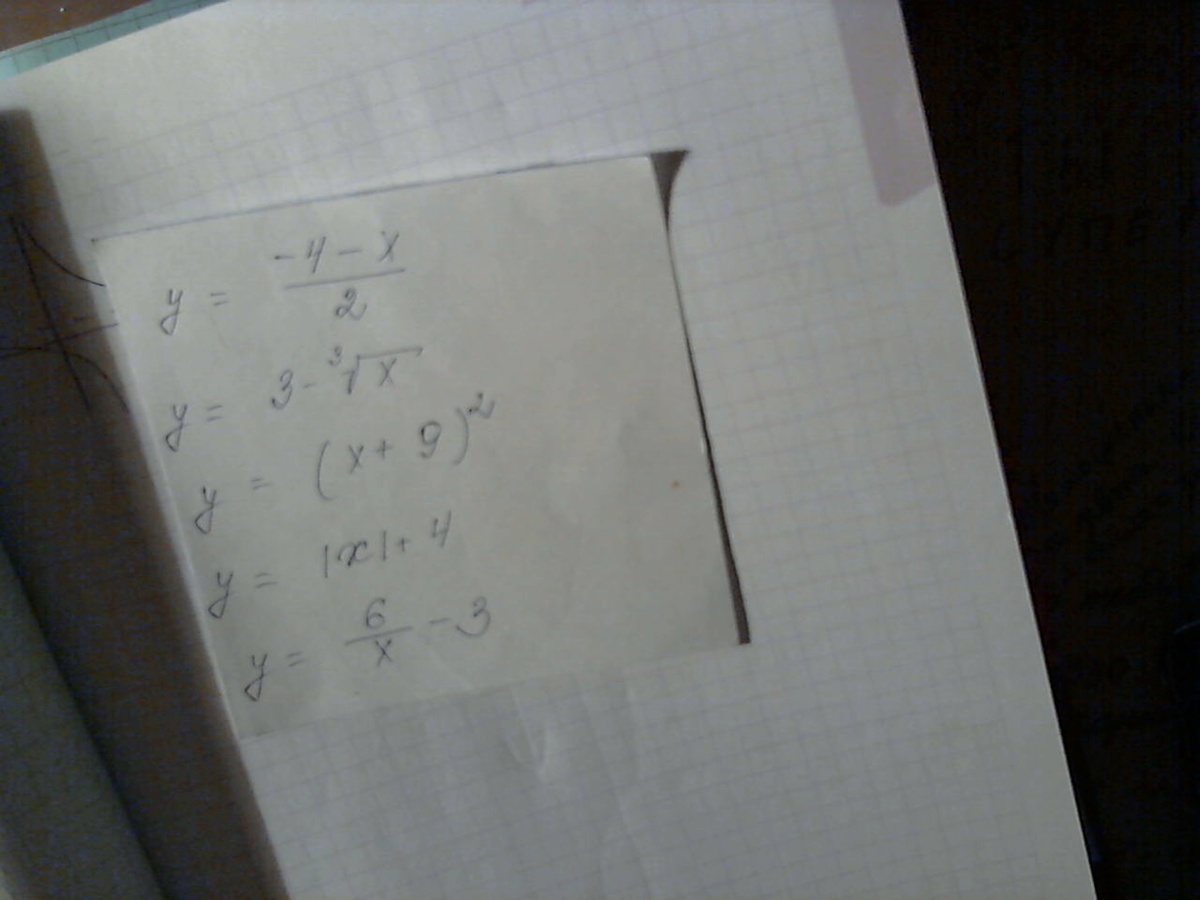 y = \frac{-4-x}{2}
y = 3-\sqrt[3]{x}
y = (x+9)^2
y = |x|+4
y = \frac{6}{x}-3